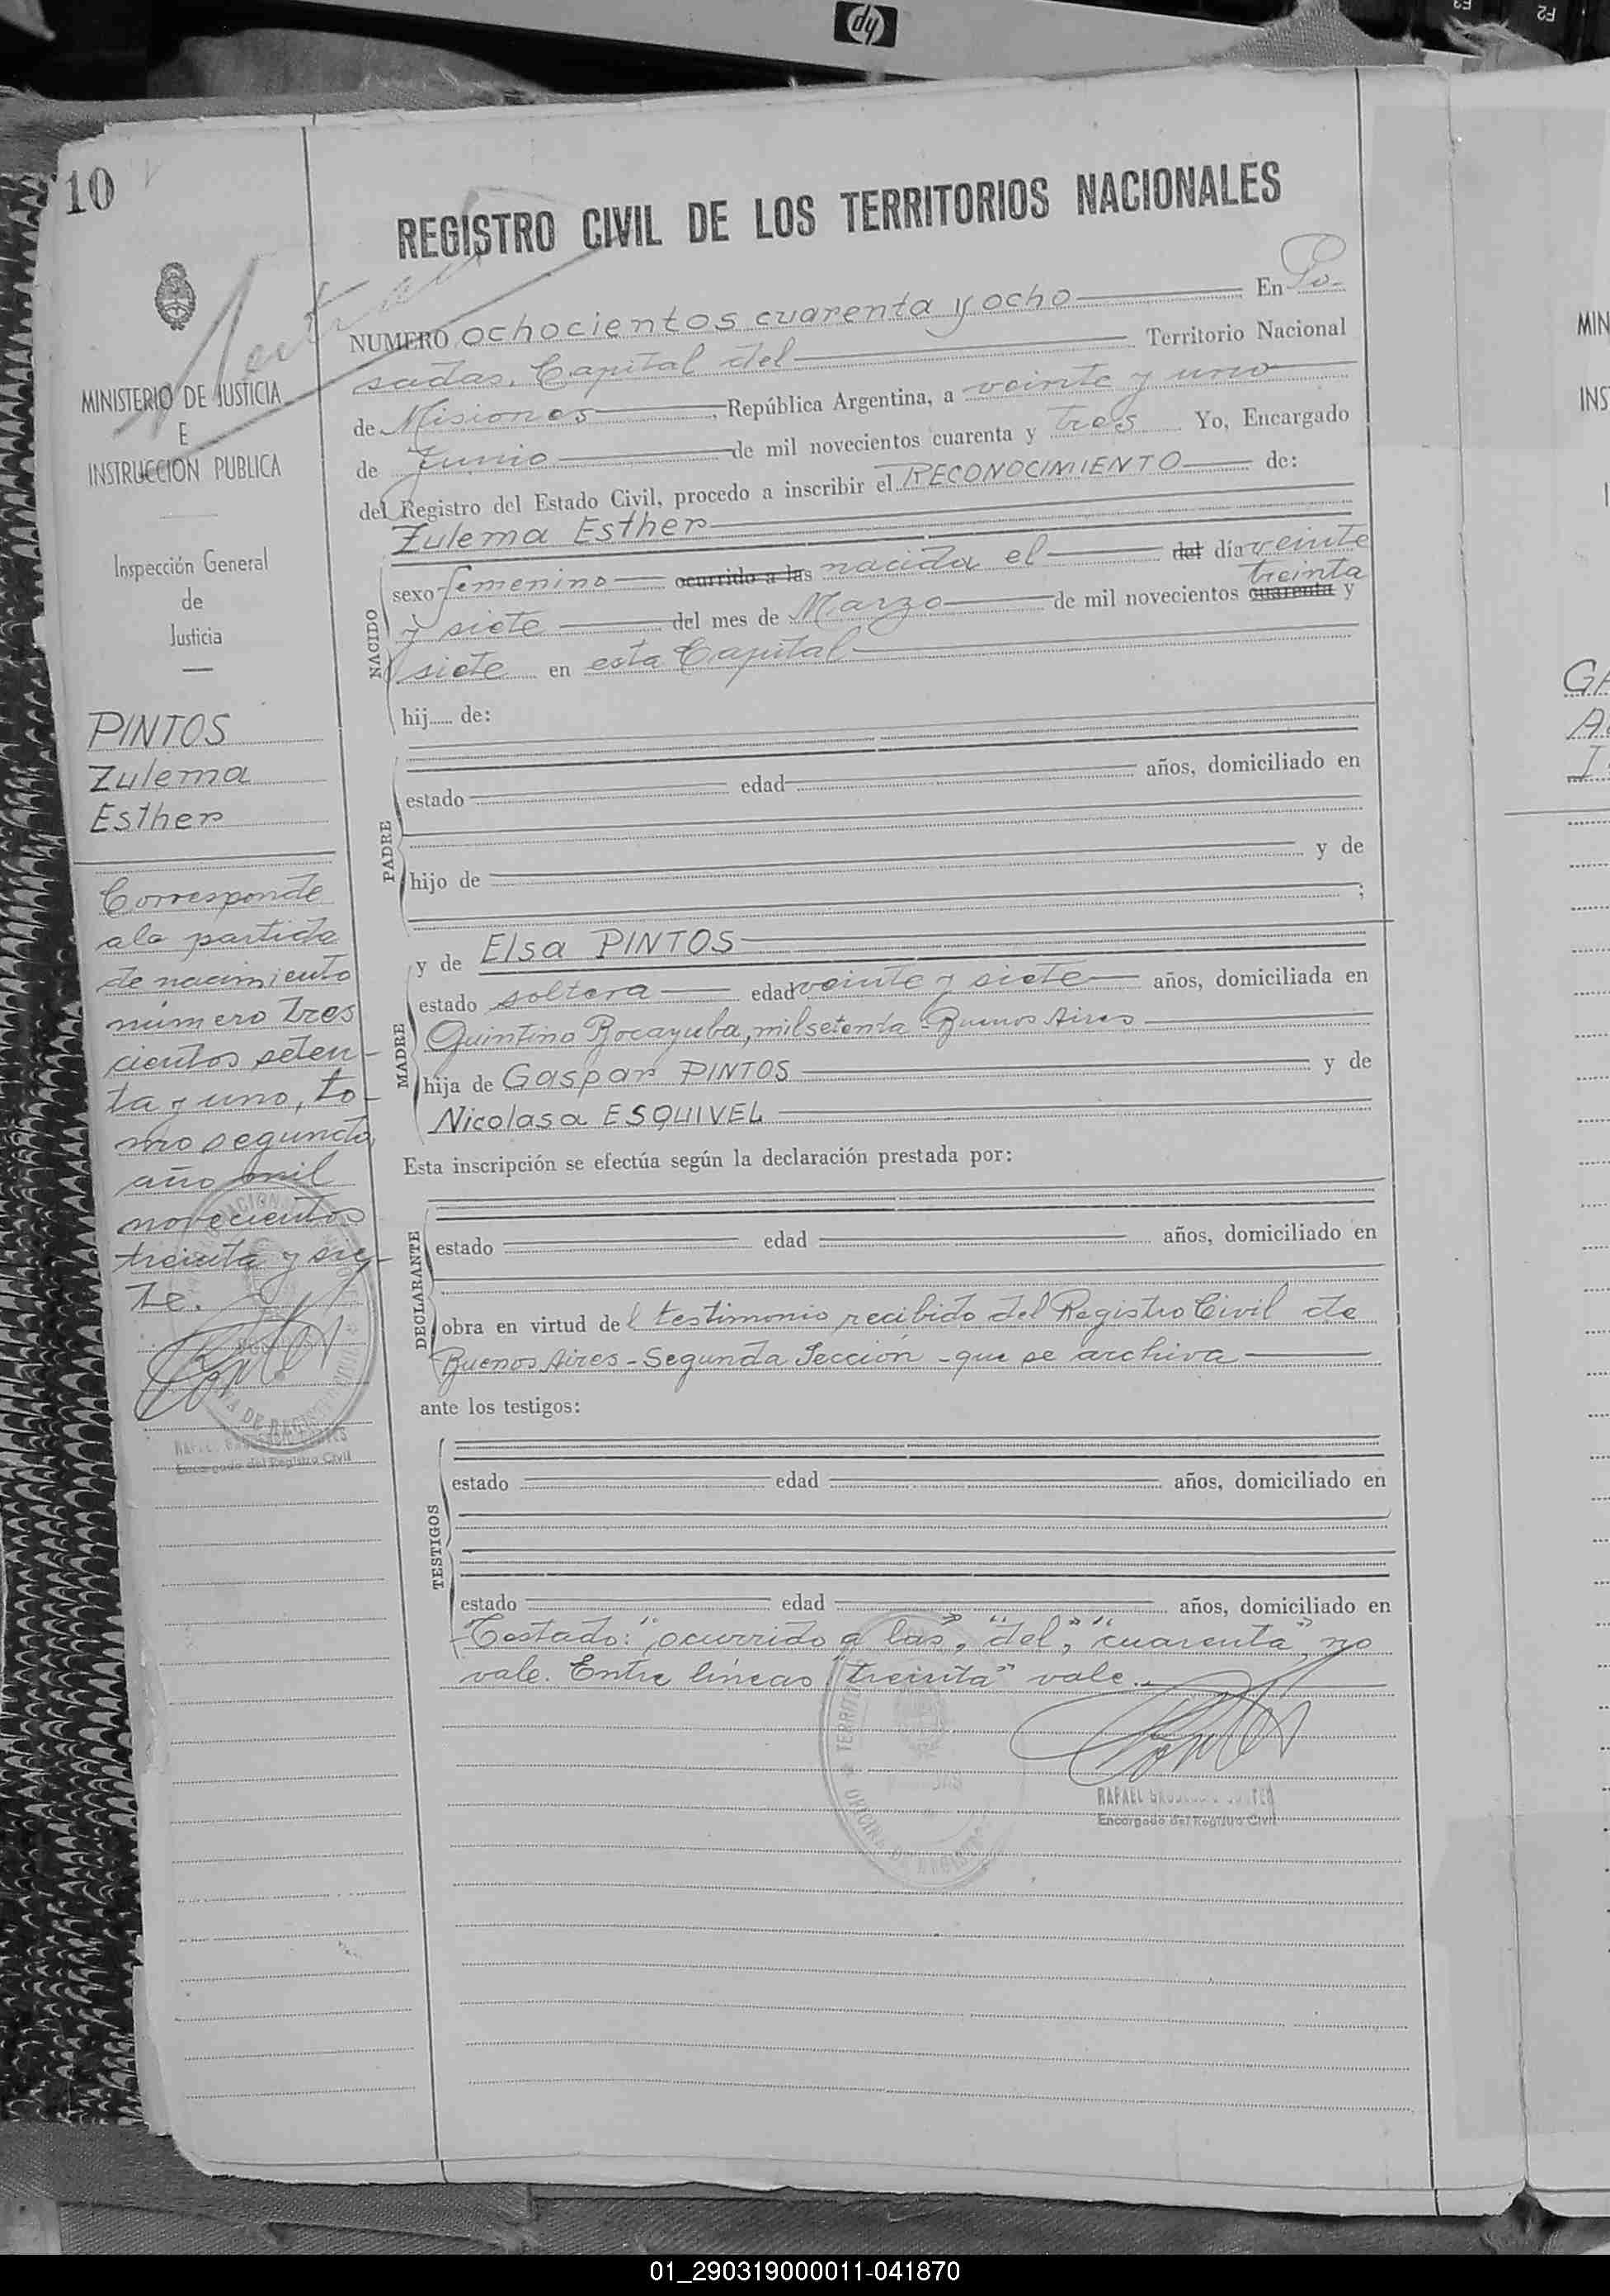 hp
F3
F2
10
REGISTRO CIVIL DE LOS TERRITORIOS NACIONALES
MINISTERIO DE JUSTICIA
E
INSTRUCCION PUBLICA
Inspección General
de
Justicia
PINTOS
Zulema
Esther
Corresponde
a la partida
de nacimiento
número tres
cientos seten-
ta y uno, to-
mo segundo
año mil
novecientos
treinta y sie-
te.
Encargado del Registro Civil
NUMERO ochocientos cuarenta y ocho En Po-
sadas, Capital del Territorio Nacional
de Misiones, República Argentina, a veinte y uno
de Junio de mil novecientos cuarenta y tres Yo, Encargado
del Registro del Estado Civil, procedo a inscribir el RECONOCIMIENTO de:
Zulema Esther
NACIDO
sexo femenino ocurrido a las nacida el del día veinte
treinta
y siete del mes de Marzo de mil novecientos cuarenta y
siete en esta Capital
hij..... de:
PADRE
estado edad años, domiciliado en
hijo de y de
;
MADRE
y de Elsa PINTOS
estado soltera edad veinte y siete años, domiciliada en
Quintino Bocayuba, mil setenta - Buenos Aires
hija de Gaspar PINTOS y de
Nicolasa ESQUIVEL
Esta inscripción se efectúa según la declaración prestada por:
DECLARANTE
estado edad años, domiciliado en
obra en virtud del testimonio recibido del Registro Civil de
Buenos Aires - Segunda Sección - que se archiva
ante los testigos:
TESTIGOS
estado edad años, domiciliado en
estado edad años, domiciliado en
Testado: "ocurrido a las", "del", "cuarenta", no
vale. Entre líneas "treinta" vale.
RAFAEL
Encargado del Registro Civil
MIN
INS
01_290319000011-041870